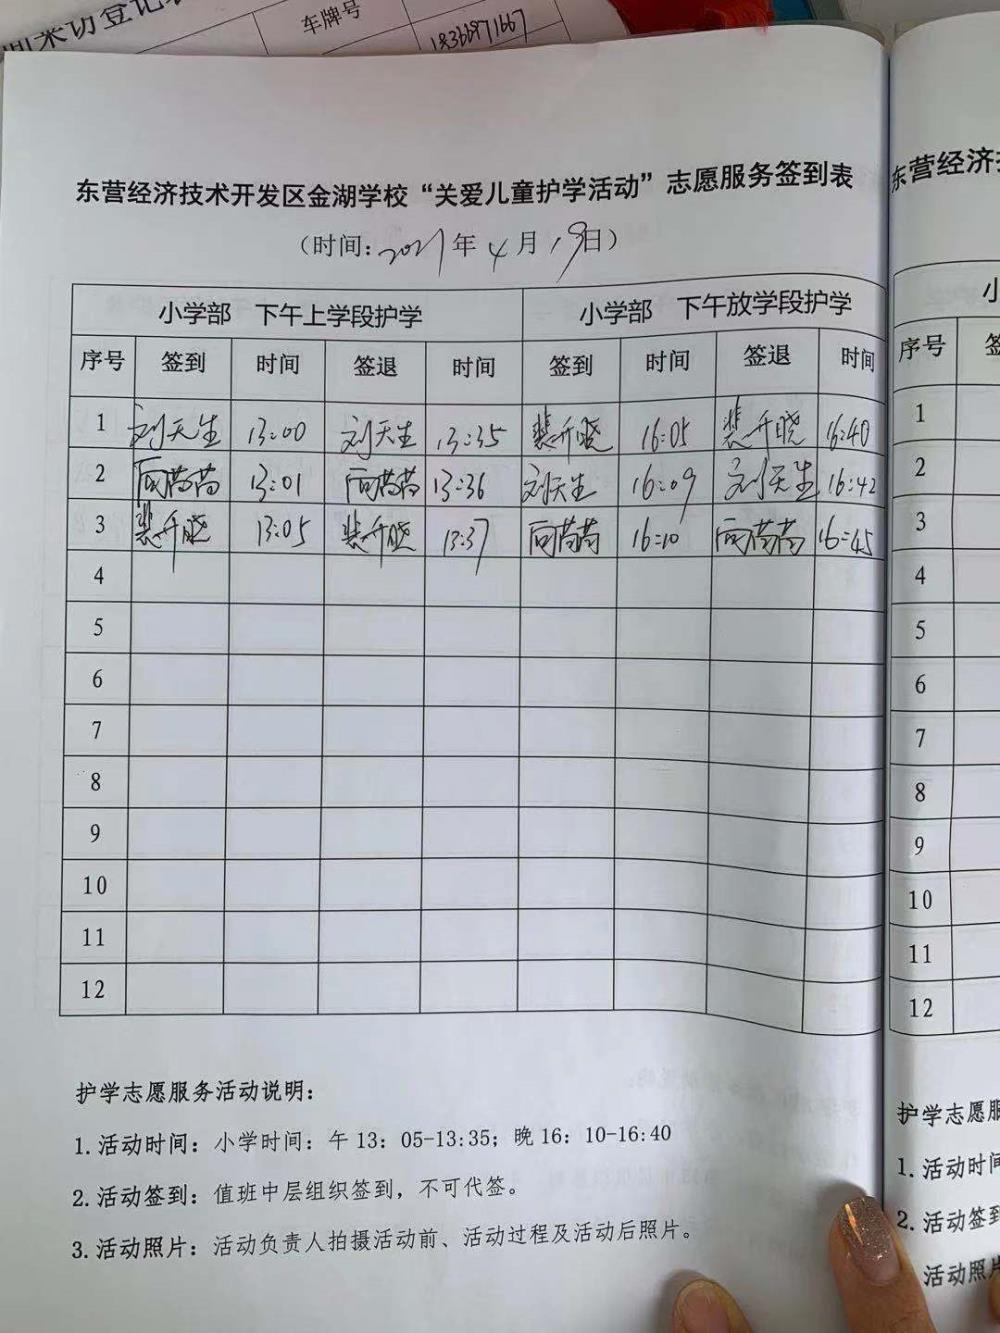 期来访登记表
车牌号
18366871667
东营经济技术开发区金湖学校“关爱儿童护学活动”志愿服务签到表
（时间：2021年4月19日）
小学部 下午上学段护学 小学部 下午放学段护学
序号 签到 时间 签退 时间 签到 时间 签退 时间
1 刘天生 13:00 刘天生 13:35 裴千晓 16:05 裴千晓 16:40
2 13:01 13:36 刘天生 16:09 刘天生 16:42
3 裴千晓 13:05 裴千晓 13:37 16:10 16:45
4
5
6
7
8
9
10
11
12
护学志愿服务活动说明：
1.活动时间：小学时间：午13：05-13:35；晚16：10-16:40
2.活动签到：值班中层组织签到，不可代签。
3.活动照片：活动负责人拍摄活动前、活动过程及活动后照片。
东营经济
小
序号
1
2
3
4
5
6
7
8
9
10
11
12
护学志愿服
1.活动时间
2.活动签到
活动照片